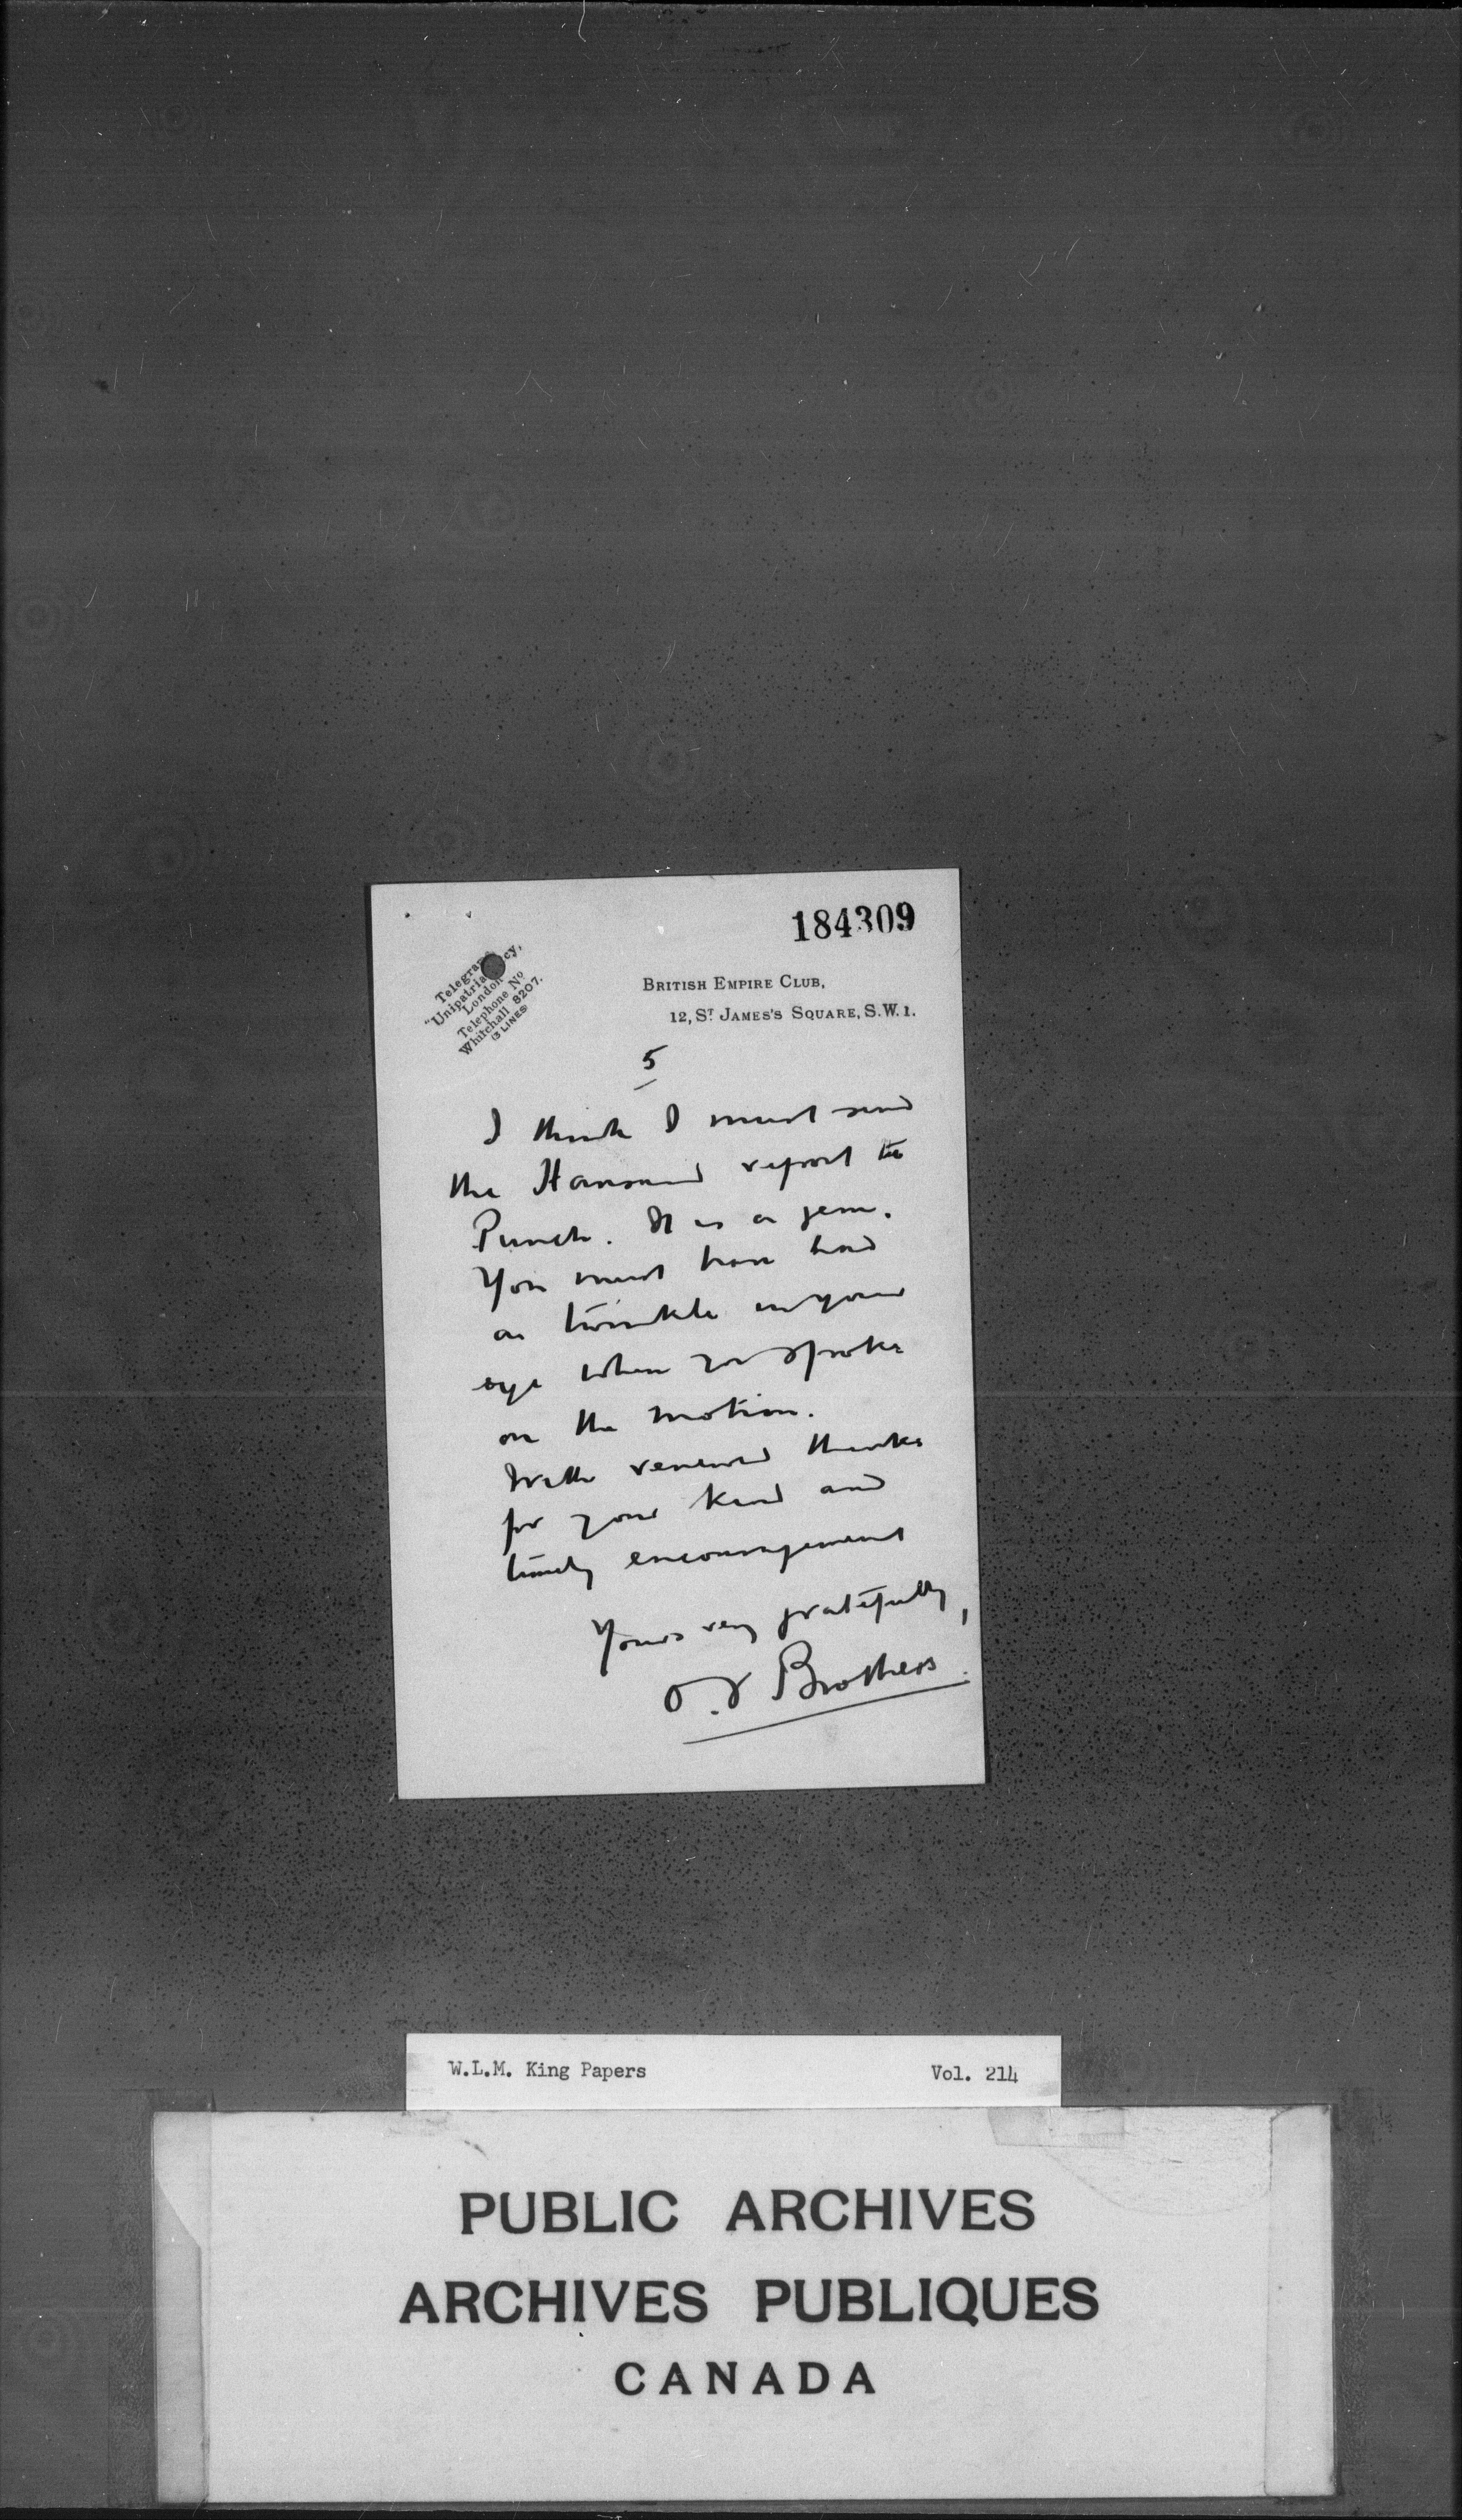 184309
Telegrams
"Unipatriacy,
London
Telephone No
Whitehall 8207.
(3 LINES)
BRITISH EMPIRE CLUB,
12, ST JAMES'S SQUARE, S.W.1.
5
I think I must send
the Hansard report to
Punch. It is a gem.
You must have had
a twinkle in your
eye when you spoke
on the motion.
With renewed thanks
for your kind and
timely encouragement
Yours very gratefully,
Brothers.
W.L.M. King Papers Vol. 214
PUBLIC ARCHIVES
ARCHIVES PUBLIQUES
CANADA